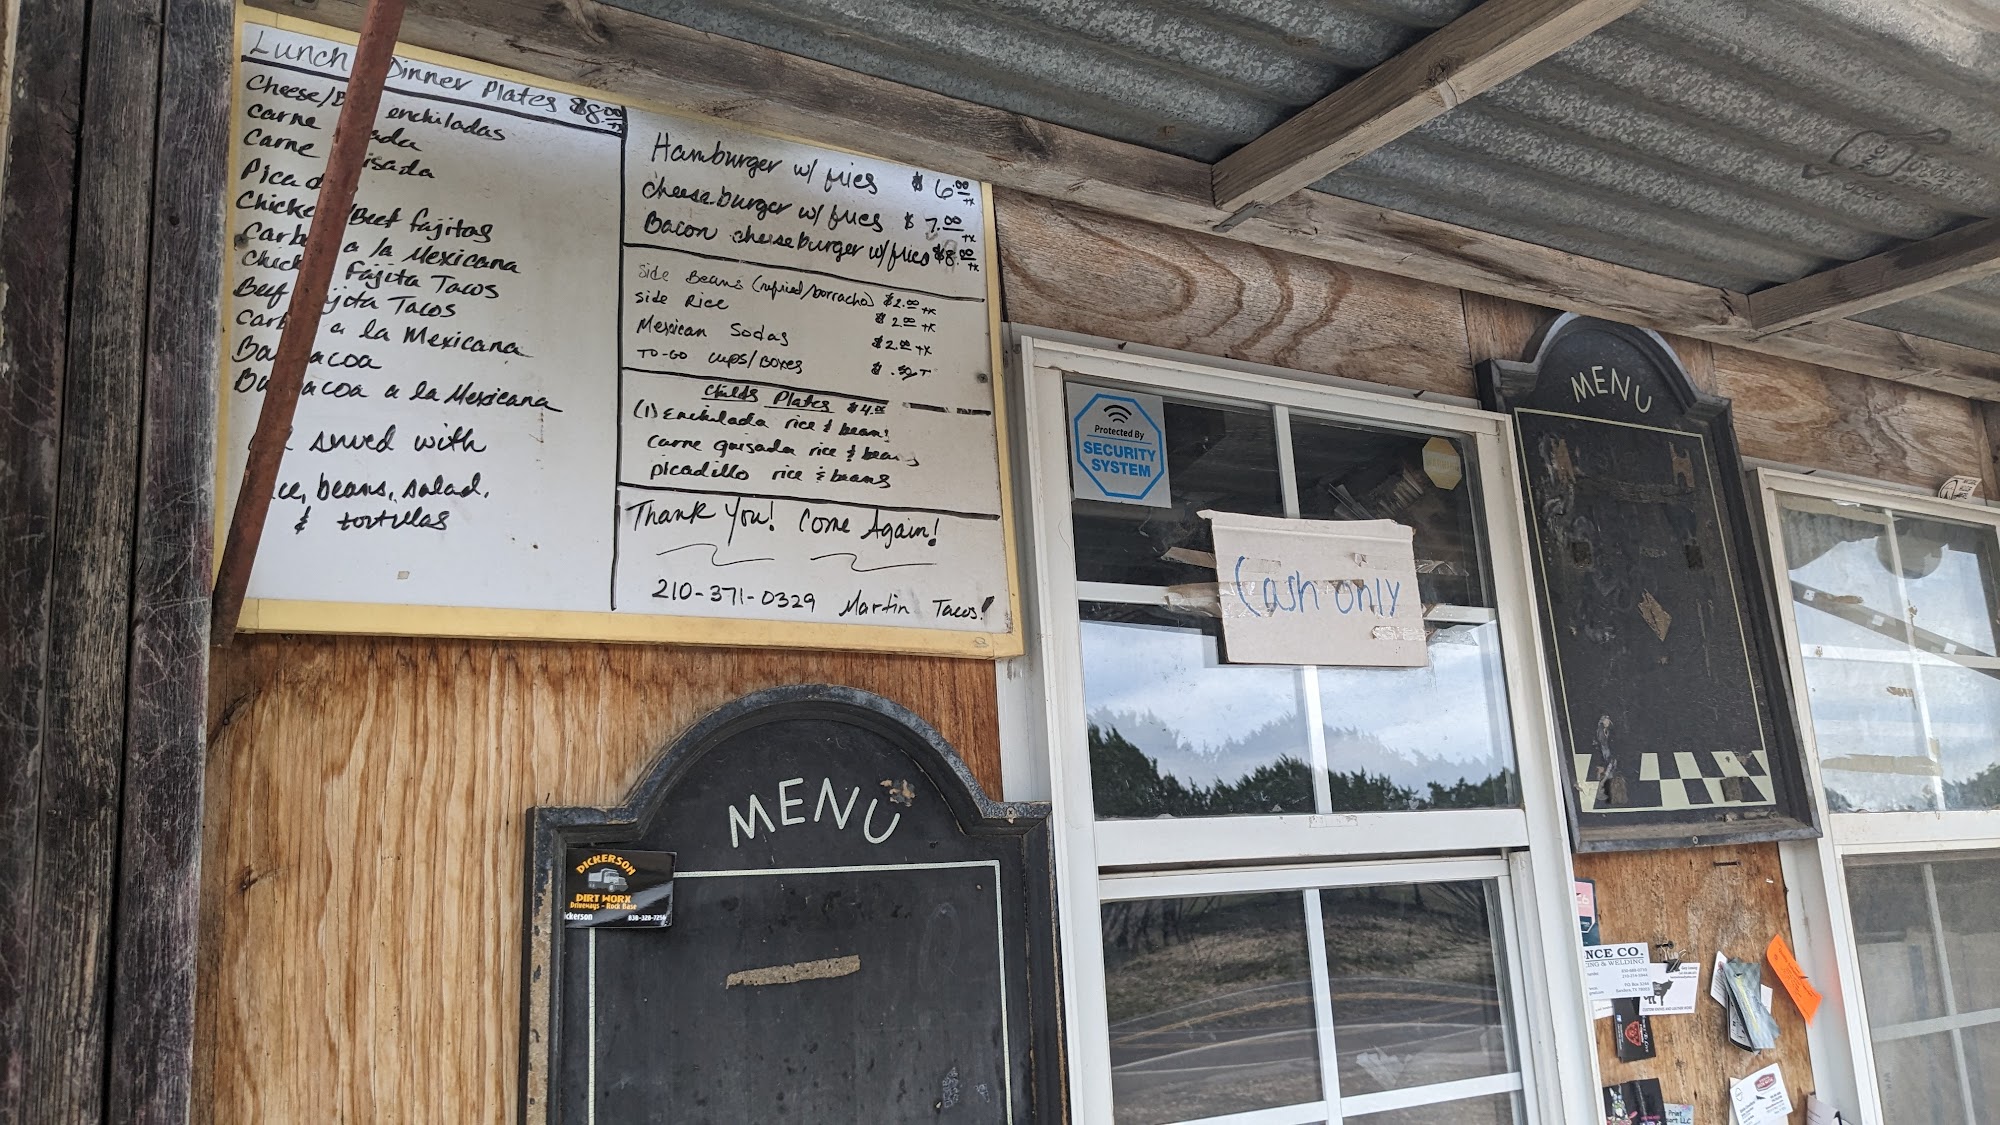 Lunch Dinner Plates $8.00 + tx
Cheese/ enchiladas
Carne
Carne
Chicken/Beef fajitas
a la Mexicana
Chicken Fajita Tacos
Beef Tacos
a la Mexicana
a la Mexicana
served with
beans, salad,
& tortillas
Hamburger w/ fries $6.00 + tx
cheeseburger w/ fries $7.00 + tx
Bacon cheeseburger w/ fries $8.00 + tx
Side Beans (refried/borracho) $2.00 + tx
Side Rice $2.00 + tx
Mexican Sodas $2.00 + tx
TO-GO cups/boxes $.50
Childs Plates $4.00
(1) Enchilada rice & beans
carne guisada rice & beans
picadillo rice & beans
Thank You! Come Again!
210-371-0329 Martin Tacos!
Protected By
SECURITY
SYSTEM
Cash only
MENU
MENU
DICKERSON
DIRT WORX
Driveways - Rock Base
830-328-7256
NCE CO.
& WELDING